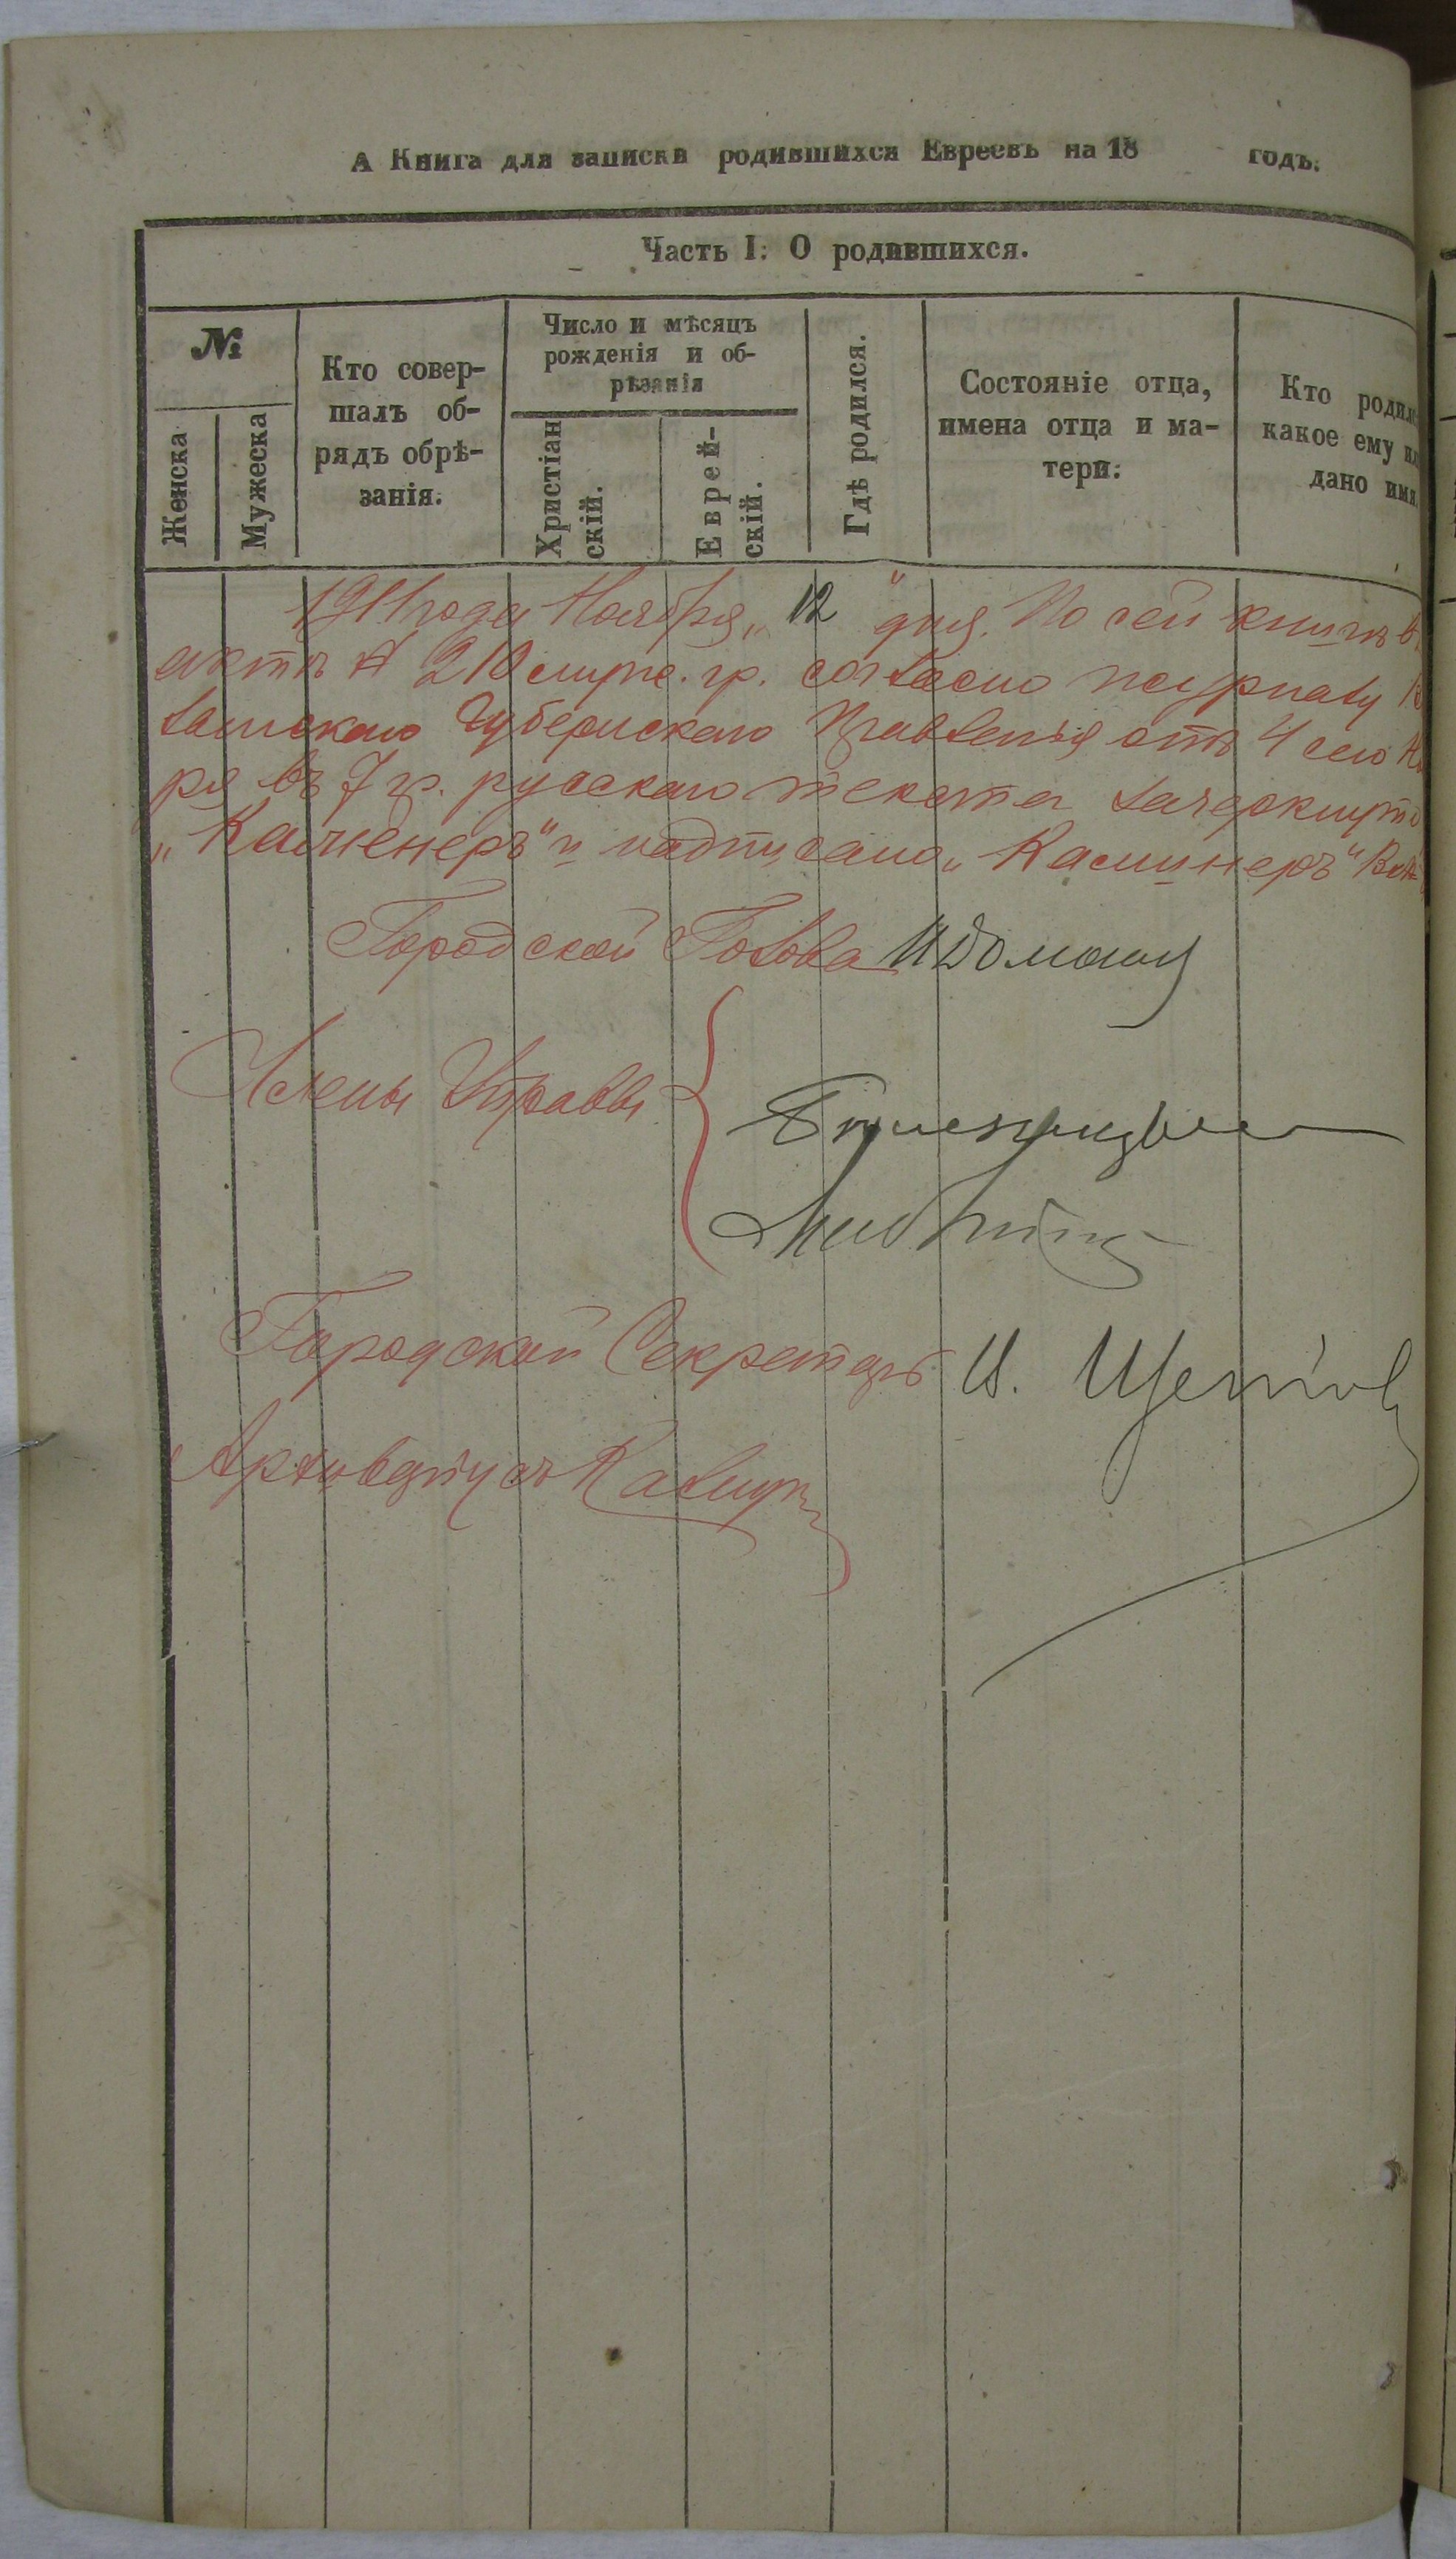 А Книга для записки родившихся Евреевъ на 18 годъ.
Часть I. О родившихся.
№
Женска
Мужеска
Кто совер-
шалъ об-
рядъ обрѣ-
занія.
Число и мѣсяцъ
рожденія и об-
рѣзанія
Христіан
скій.
Еврей-
скій.
Гдѣ родился.
Состояніе отца,
имена отца и ма-
тери.
Кто родил
какое ему ил
дано имя.
1911 года Ноября „12" дня. По сей книгѣ въ
актѣ № 210 муж. гр. согласно журналу
Губернскаго Правленія отъ 4 сего Но
ря въ 7 гр. русскаго текста зачеркнуто
„Калменеръ" и надписано „Касинеръ"
Городской Голова
Члены Управы
Городской Секретарь И.
Архиваріусъ